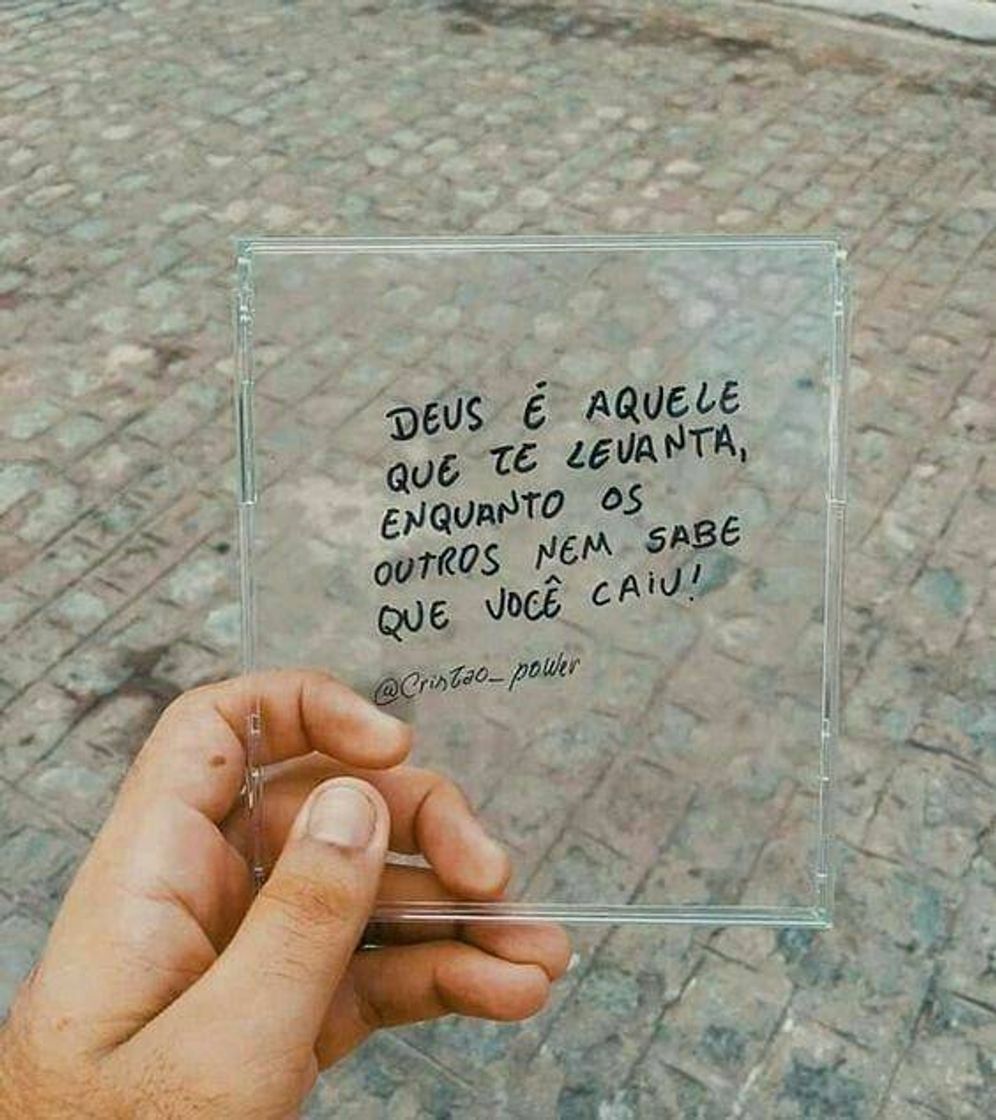 DEUS É AQUELE
QUE TE LEVANTA,
ENQUANTO OS
OUTROS NEM SABE
QUE VOCÊ CAiU!
@Cristao_power